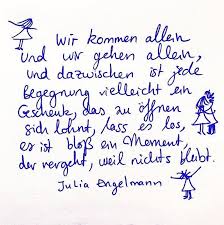 Wir kommen allein
und wir gehen allein,
und dazwischen ist jede
Begegnung vielleicht ein
Geschenk, das zu öffnen
sich lohnt, lass es los,
es ist bloß ein Moment,
der vergeht, weil nichts bleibt.
Julia Engelmann